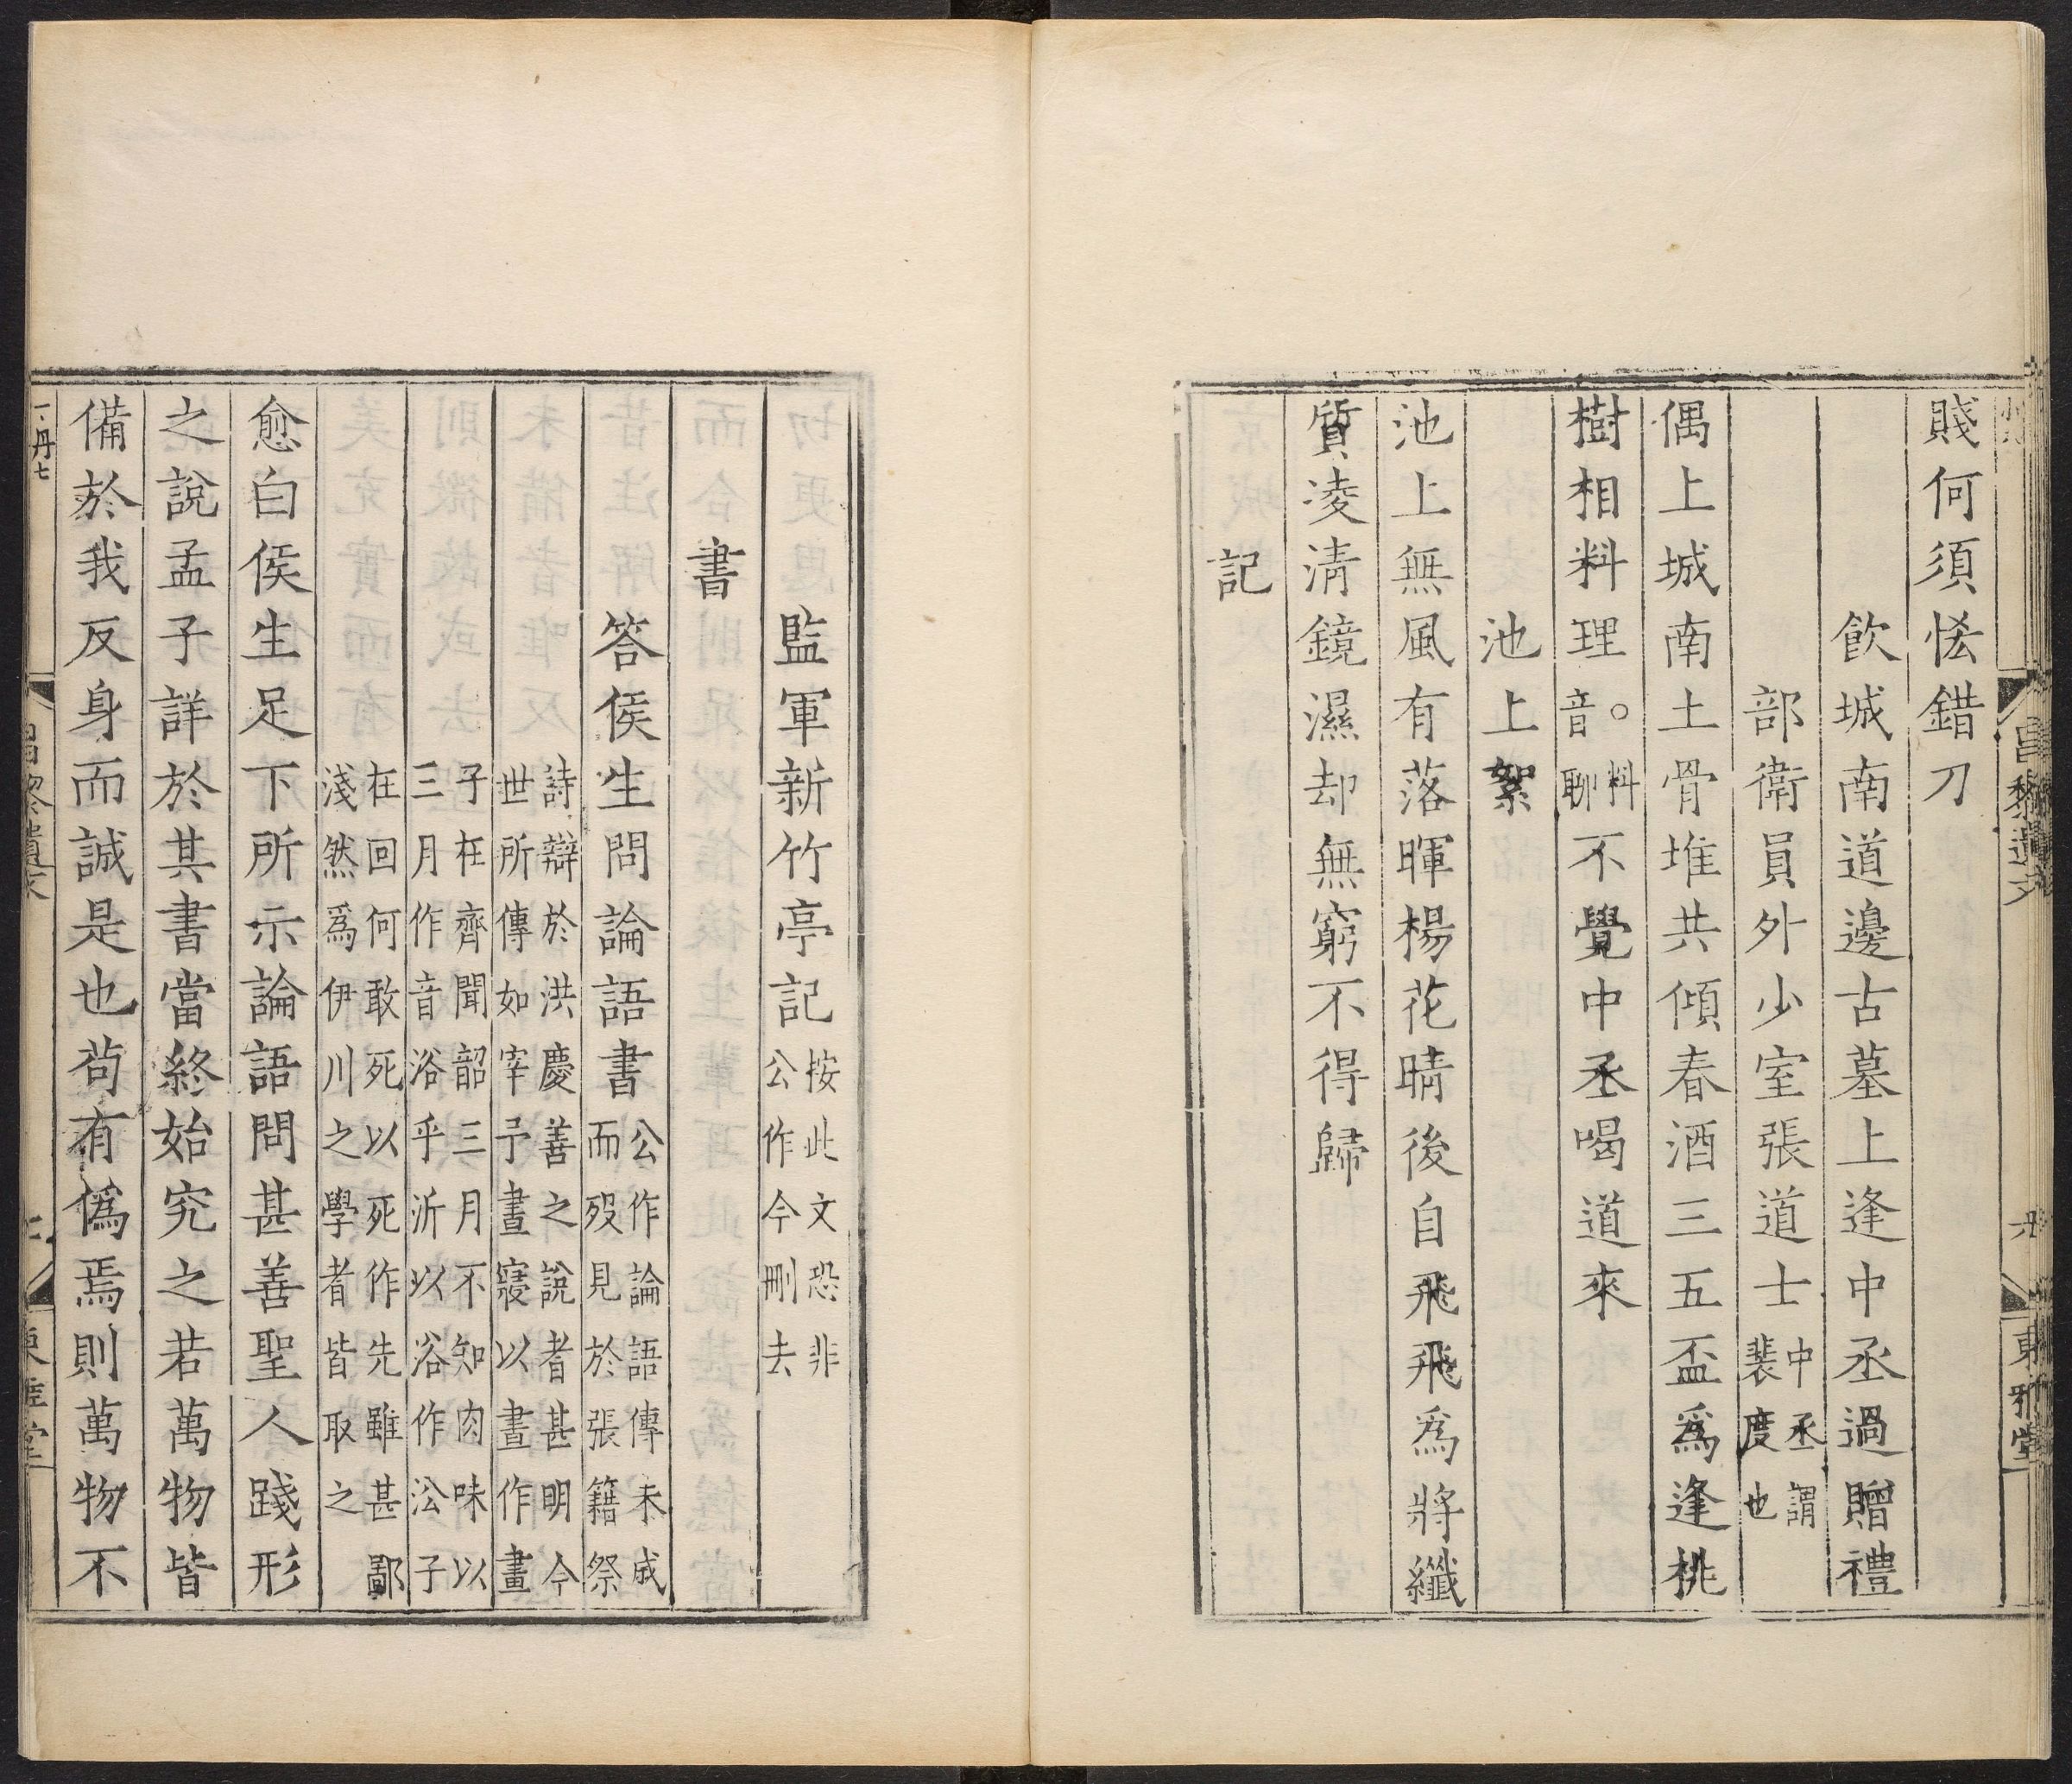 賤何須恡錯刀
飲城南道邊古墓上逢中丞過贈禮
部衛員外少室張道士中丞謂裴度也
偶上城南土骨堆共傾春酒三五盃爲逢桃
樹相料理○料音聊不覺中丞喝道來
池上絮
池上無風有落暉楊花晴後自飛飛爲將纖
質凌淸鏡濕却無窮不得歸
記
監軍新竹亭記按此文恐非公作今刪去
書
答侯生問論語書公作論語傳未成而歿見於張籍祭
詩辯於洪慶善之說者甚明今世所傳如宰予晝寢以晝作畫
子在齊聞韶三月不知肉味以三月作音浴乎沂以浴作㳂子
在回何敢死以死作先雖甚鄙淺然爲伊川之學者皆取之
愈白侯生足下所示論語問甚善聖人踐形
之說孟子詳於其書當終始究之若萬物皆
備於我反身而誠是也苟有僞焉則萬物不
昌黎遺文
東雅堂